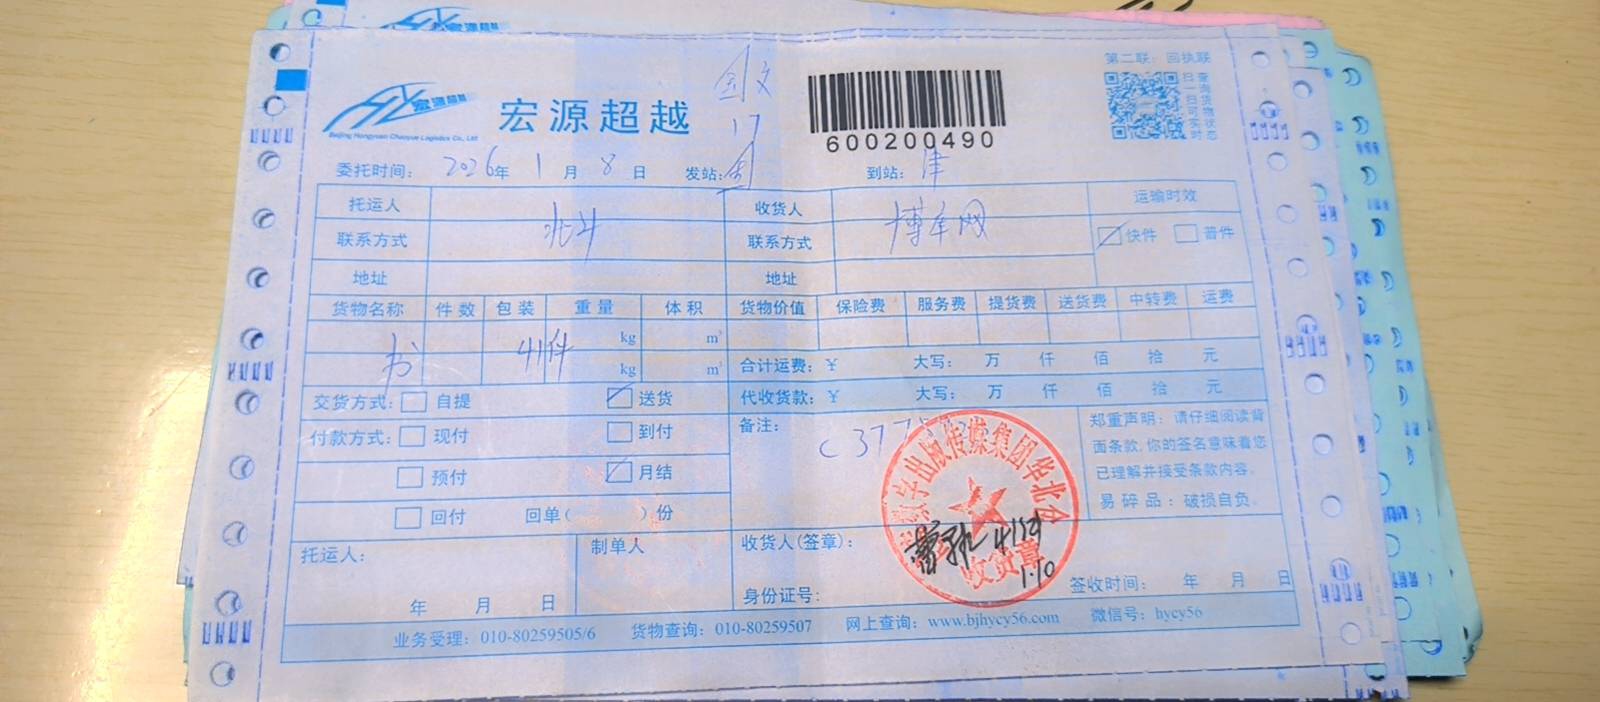 第二联：回执联
宏源超越
Beijing Hongyuan Chaoyue Logistics Co., Ltd
宏源超越
17
600200490
扫一扫可实时
查询货物状态
委托时间： 2026年 1月 8日 发站： 到站：津
托运人 收货人 运输时效
联系方式 北斗 联系方式 博库网 快件 普件
地址 地址
货物名称 件数 包装 重量 体积 货物价值 保险费 服务费 提货费 送货费 中转费 运费
kg m³
书 41件 kg m³ 合计运费：¥ 大写： 万 仟 佰 拾 元
交货方式： 自提 送货 代收货款：¥ 大写： 万 仟 佰 拾 元
付款方式： 现付 到付 备注：
C377
预付 月结
回付 回单（ ）份
郑重声明：请仔细阅读背
面条款，你的签名意味着您
已理解并接受条款内容。
易碎品：破损自负。
数字出版传媒集团华北
收货章
托运人： 制单人 收货人(签章)： 41件
1.10
年 月 日 身份证号： 签收时间： 年 月 日
业务受理：010-80259505/6 货物查询：010-80259507 网上查询：www.bjhycy56.com 微信号：hycy56